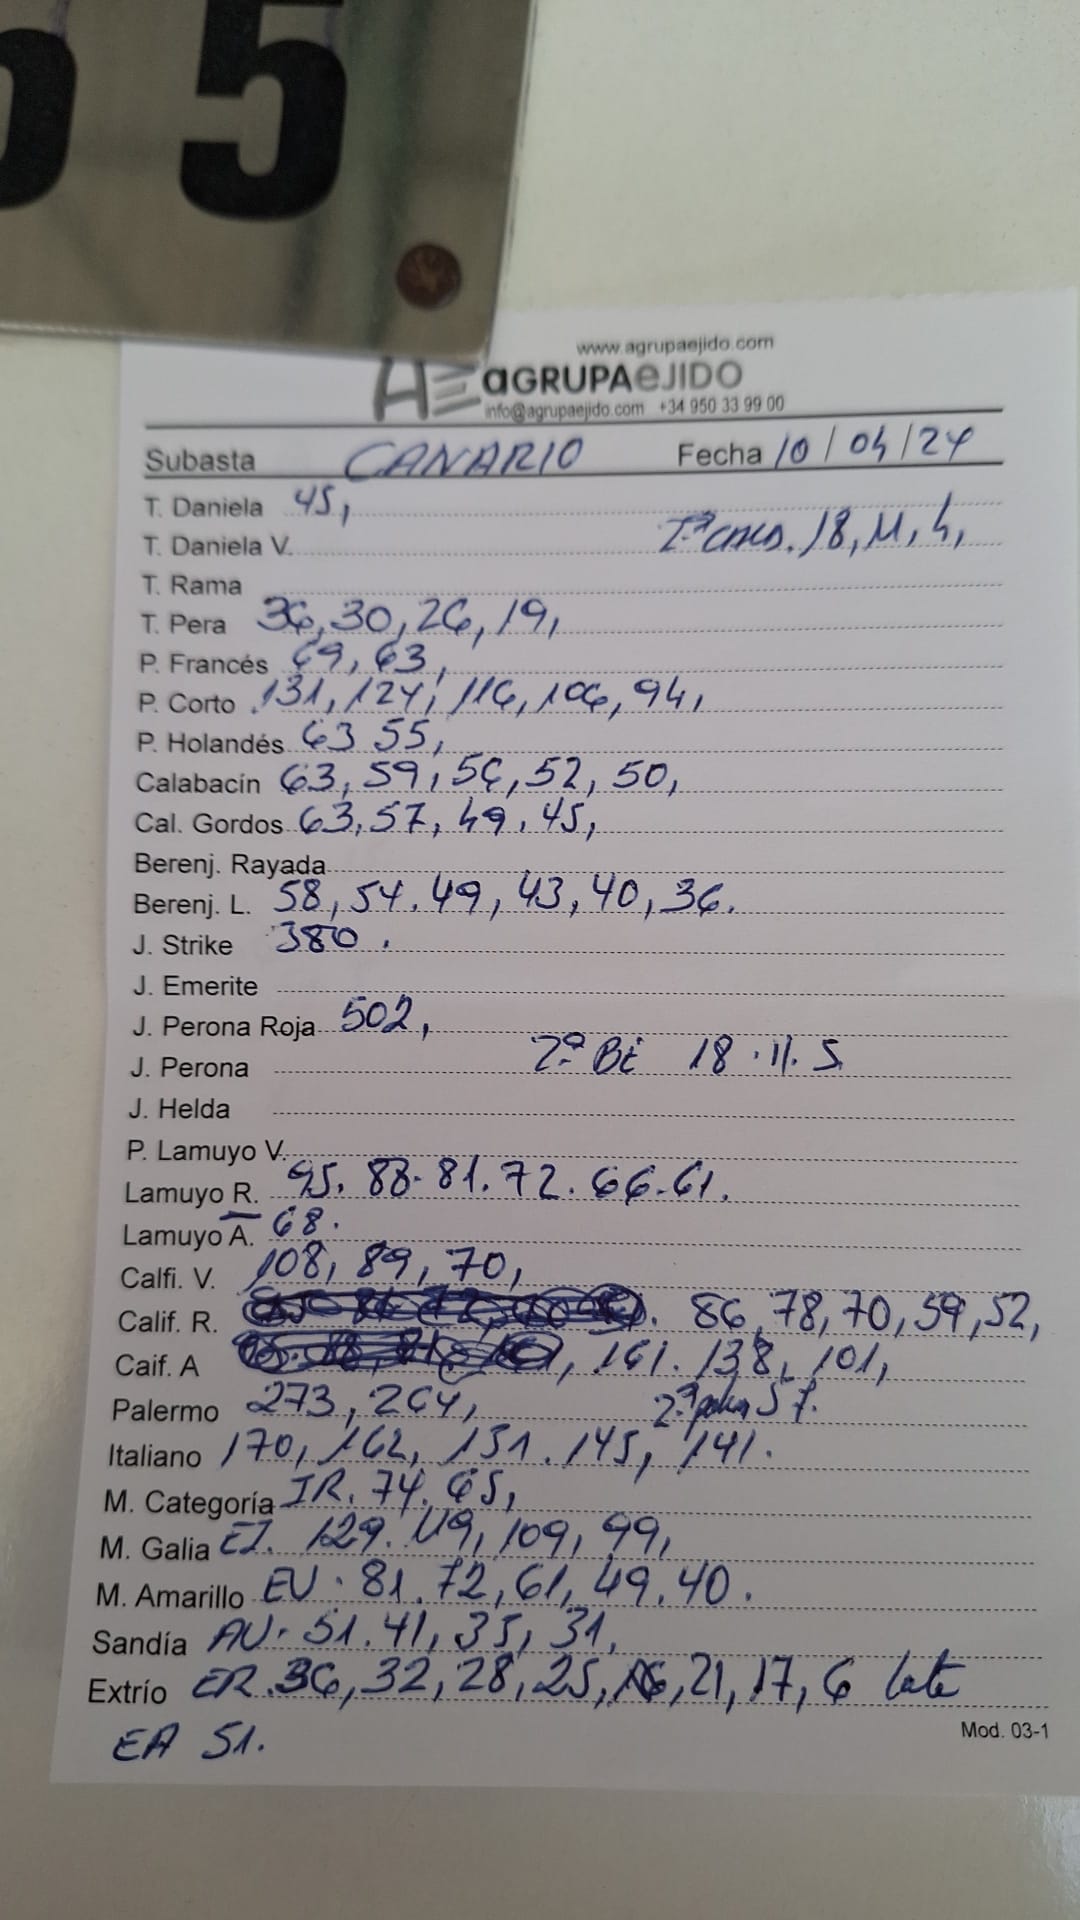 5 5
www.agrupaejido.com
AE aGRUPAeJIDO
info@agrupaejido.com +34 950 33 99 00
Subasta CANARIO Fecha 10/04/24
T. Daniela 45,
T. Daniela V. 18, 11, 4,
T. Rama
T. Pera 36, 30, 26, 19,
P. Francés 69, 63,
P. Corto 131, 124, 116, 106, 94,
P. Holandés 63 55,
Calabacín 63, 59, 56, 52, 50,
Cal. Gordos 63, 57, 49, 45,
Berenj. Rayada
Berenj. L. 58, 54. 49, 43, 40, 36.
J. Strike 380.
J. Emerite
J. Perona Roja 502,
J. Perona 2ª BE 18. 11. 5
J. Helda
P. Lamuyo V.
Lamuyo R. 95. 88. 81. 72. 66. 61.
Lamuyo A. 68.
Calfi. V. 108, 89, 70,
Calif. R. 86, 78, 70, 59, 52,
Caif. A 161. 138, 101,
Palermo 273, 264, 2ª
Italiano 170, 162, 151. 145, 141.
M. Categoría IR. 74. 65,
M. Galia EI. 129. 119, 109, 99,
M. Amarillo EV. 81. 72, 61, 49. 40.
Sandía AV. 51. 41, 35, 31,
Extrío ER. 36, 32, 28, 25, 21, 17, 6 late
EA 51.
Mod. 03-1